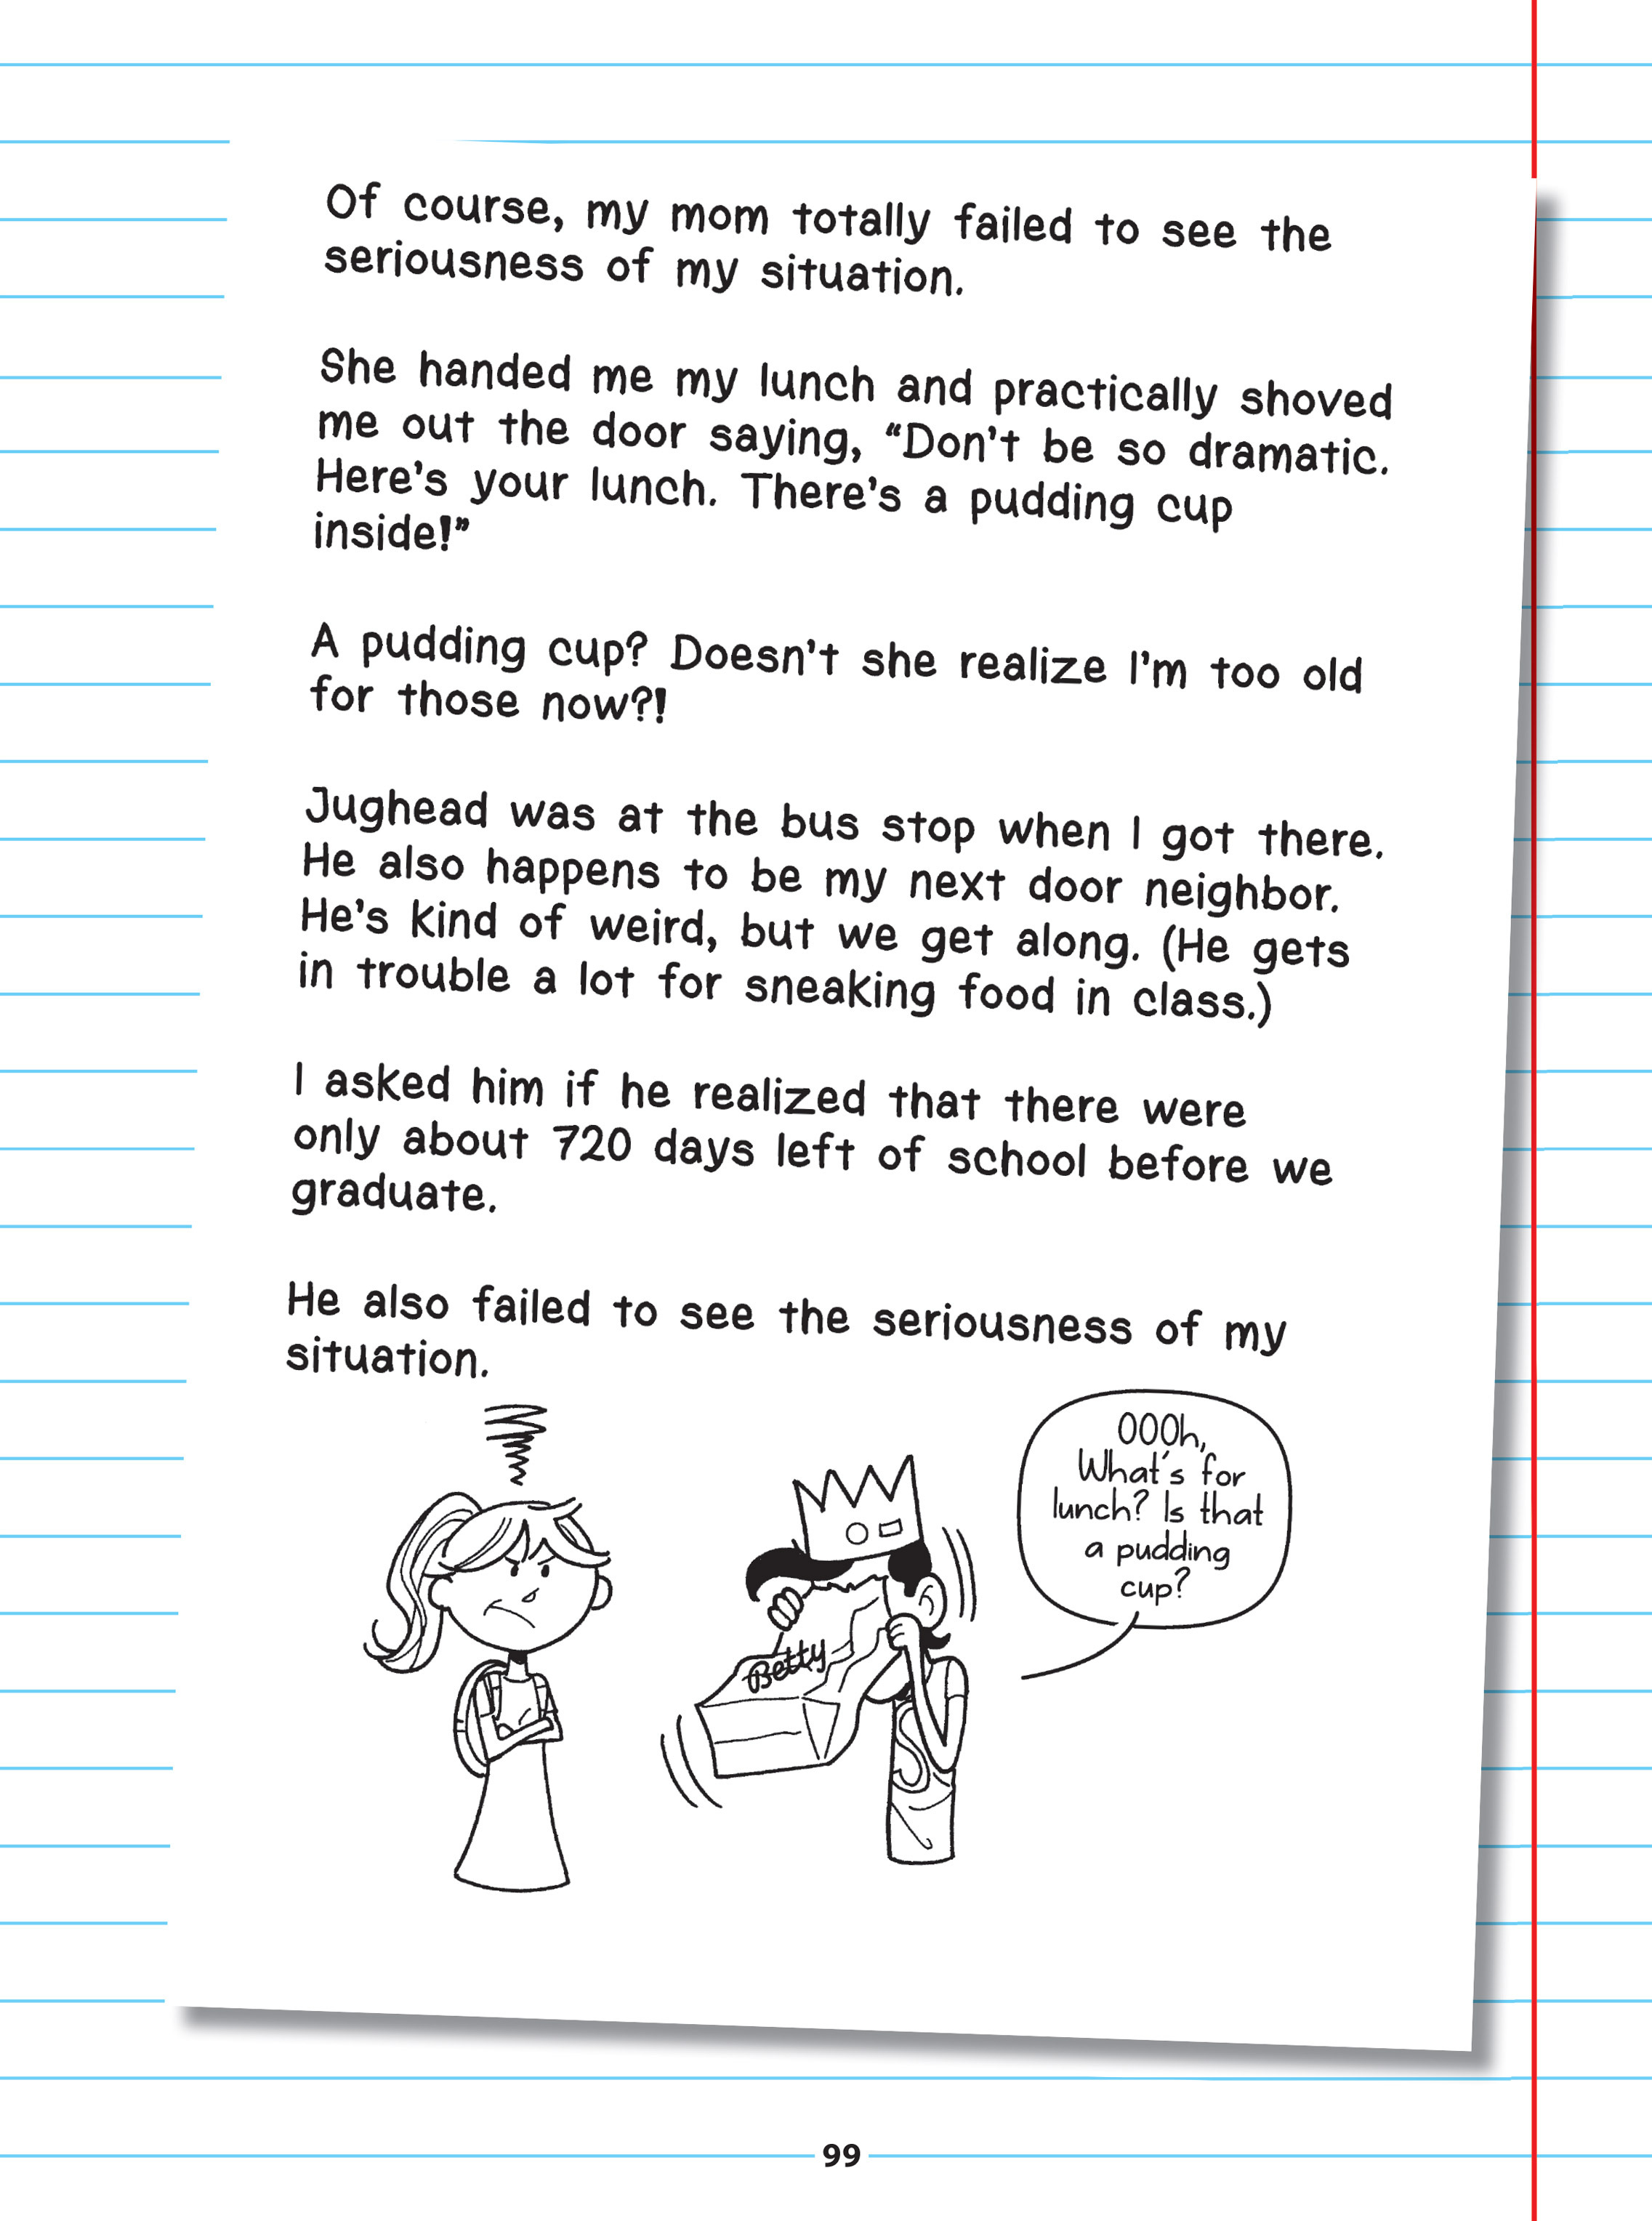 Of course, my mom totally failed to see the
seriousness of my situation.
She handed me my lunch and practically shoved
me out the door saying, “Don’t be so dramatic.
Here’s your lunch. There’s a pudding cup
inside!”
A pudding cup? Doesn’t she realize I’m too old
for those now?!
Jughead was at the bus stop when I got there.
He also happens to be my next door neighbor.
He’s kind of weird, but we get along. (He gets
in trouble a lot for sneaking food in class.)
I asked him if he realized that there were
only about 720 days left of school before we
graduate.
He also failed to see the seriousness of my
situation.
OOOh,
What's for
lunch? Is that
a pudding
cup?
Betty
S
99